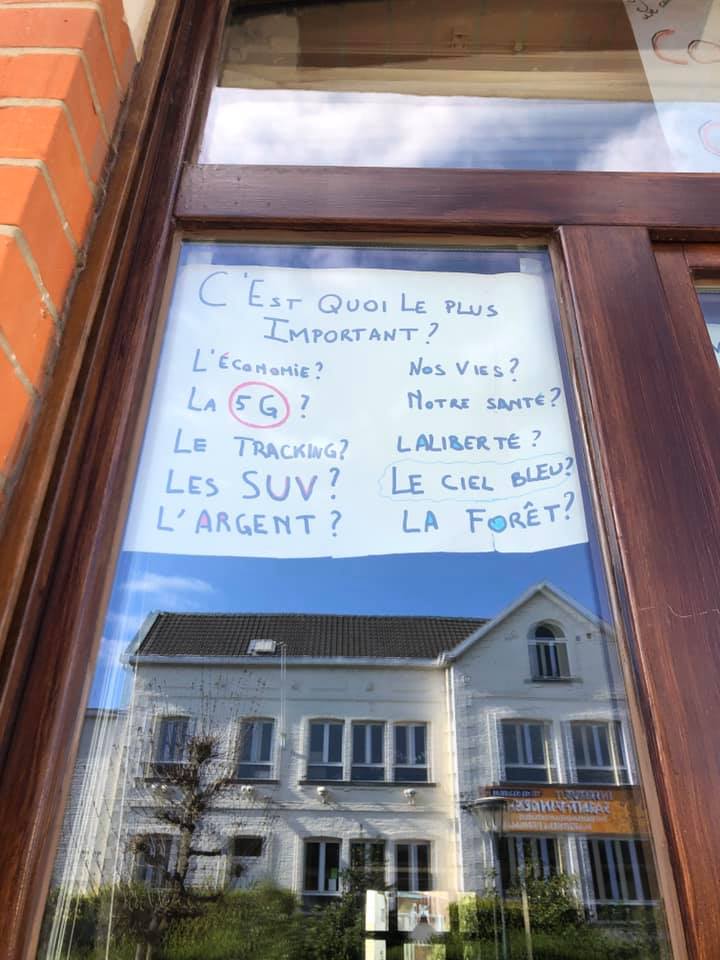 C'EST QUOI LE PLUS
IMPORTANT?
L'ÉCONOMIE? NOS VIES?
LA 5G ? NOTRE SANTÉ?
LE TRACKING? LALIBERTÉ ?
LES SUV? LE CIEL BLEU?
L'ARGENT ? LA FORÊT?